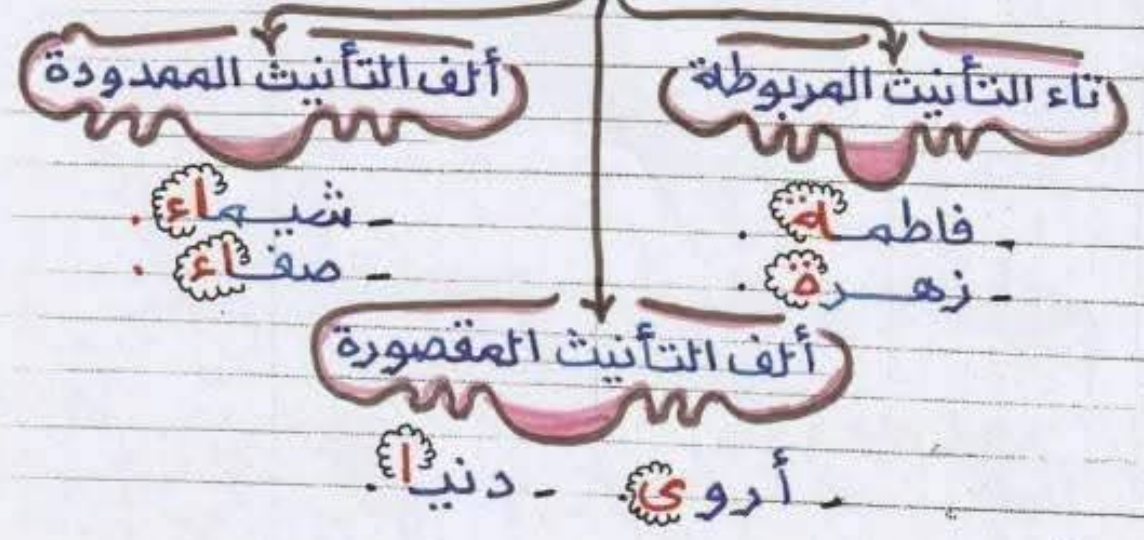 تاء التأنيث المربوطة
- فاطمة .
- زهرة .
ألف التأنيث الممدودة
- شيماء .
- صفاء .
ألف التأنيث المقصورة
- أروى . - دنيا .